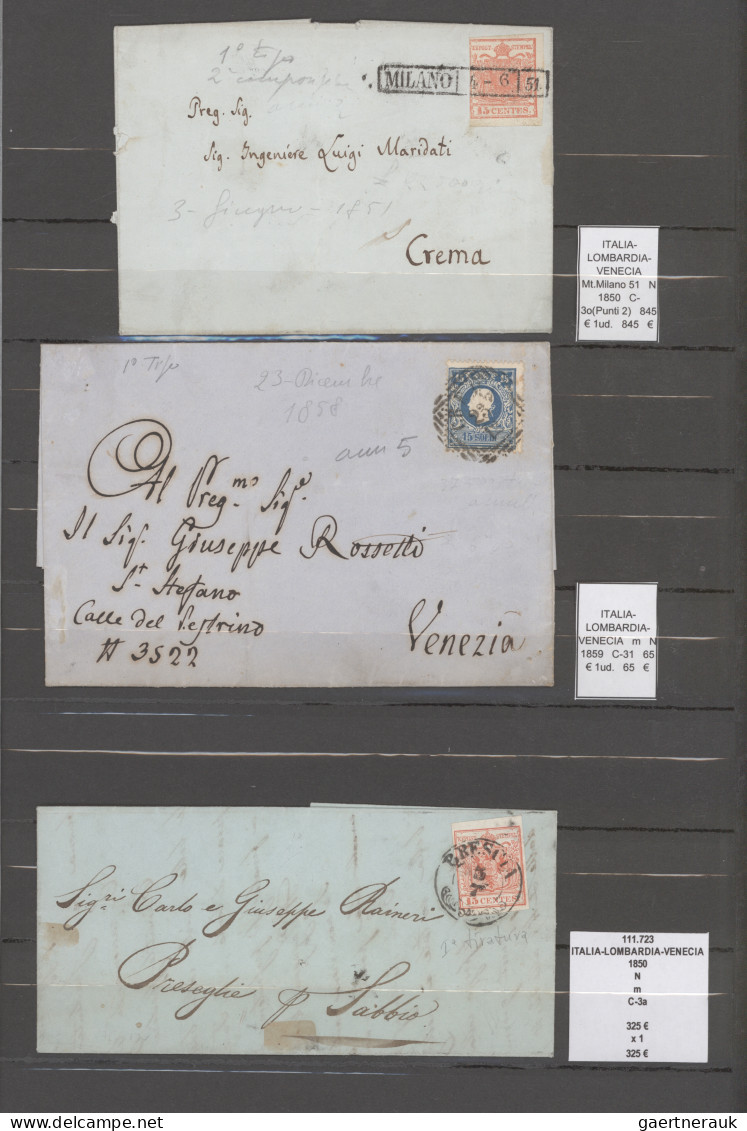 1º Tipo
MILANO 4 - 6 51.
15 CENTES.
Preg. Sig.
Sig. Ingeniere Luigi Maridati
3 - Giugno - 1851
Crema
ITALIA-
LOMBARDIA-
VENECIA
Mt.Milano 51 N
1850 C-
3o(Punti 2) 845
€ 1ud. 845 €
1º Tipo
23 - Dicembre
1858
15 SOLDI
Al Pregmo Sige
Il Sig. Giuseppe Rossetti
St Stefano
Calle del Pestrino
# 3522
Venezia
ITALIA-
LOMBARDIA-
VENECIA m N
1859 C-31 65
€ 1ud. 65 €
BRESCIA
15 CENTES.
Sigri Carlo e Giuseppe Raineri
Preseglie p Sabbio
111.723
ITALIA-LOMBARDIA-VENECIA
1850
N
m
C-3a
325 €
x 1
325 €
gaertnerauk